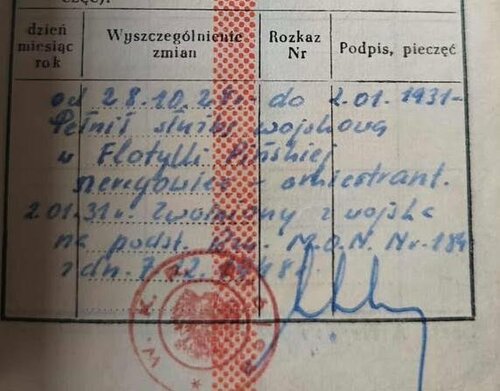 częć).
dzień miesiąc rok
Wyszczególnienie zmian
Rozkaz Nr
Podpis, pieczęć
od 28.10.29r. do 2.01.1931-
Pełnił służbę wojskową
w Flotylli Pińskiej
2.01.31r. Zwolniony z wojska
na podst. Roz. M.O.N. Nr-184
z dn. 7.12.1948r.